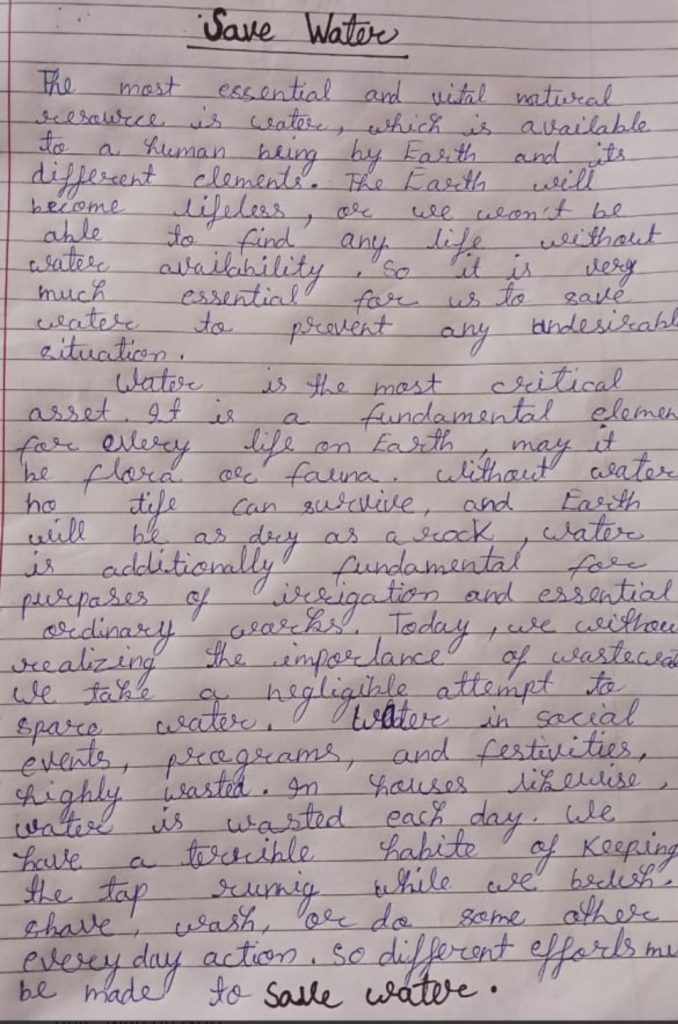 Save Water
The most essential and vital natural
resource is water, which is available
to a human being by Earth and its
different elements. The Earth will
become lifeless, or we won't be
able to find any life without
water availability. So it is very
much essential for us to save
water to prevent any undesirabl
situation.
Water is the most critical
asset. It is a fundamental elemen
for every life on Earth, may it
be flora or fauna. without water
no life can survive, and Earth
will be as dry as a rock, water
is additionally fundamental for
purpases of irrigation and essential
ordinary works. Today, we withou
realizing the importance of wastewat
We take a negligible attempt to
spare water. Water in social
events, programs, and festivities,
highly wasted. In houses likewise,
water is wasted each day. We
have a terrible habite of Keeping
the tap runnig while we brush.
shave, wash, or do some other
every day action. So different efforts mu
be made to save water.